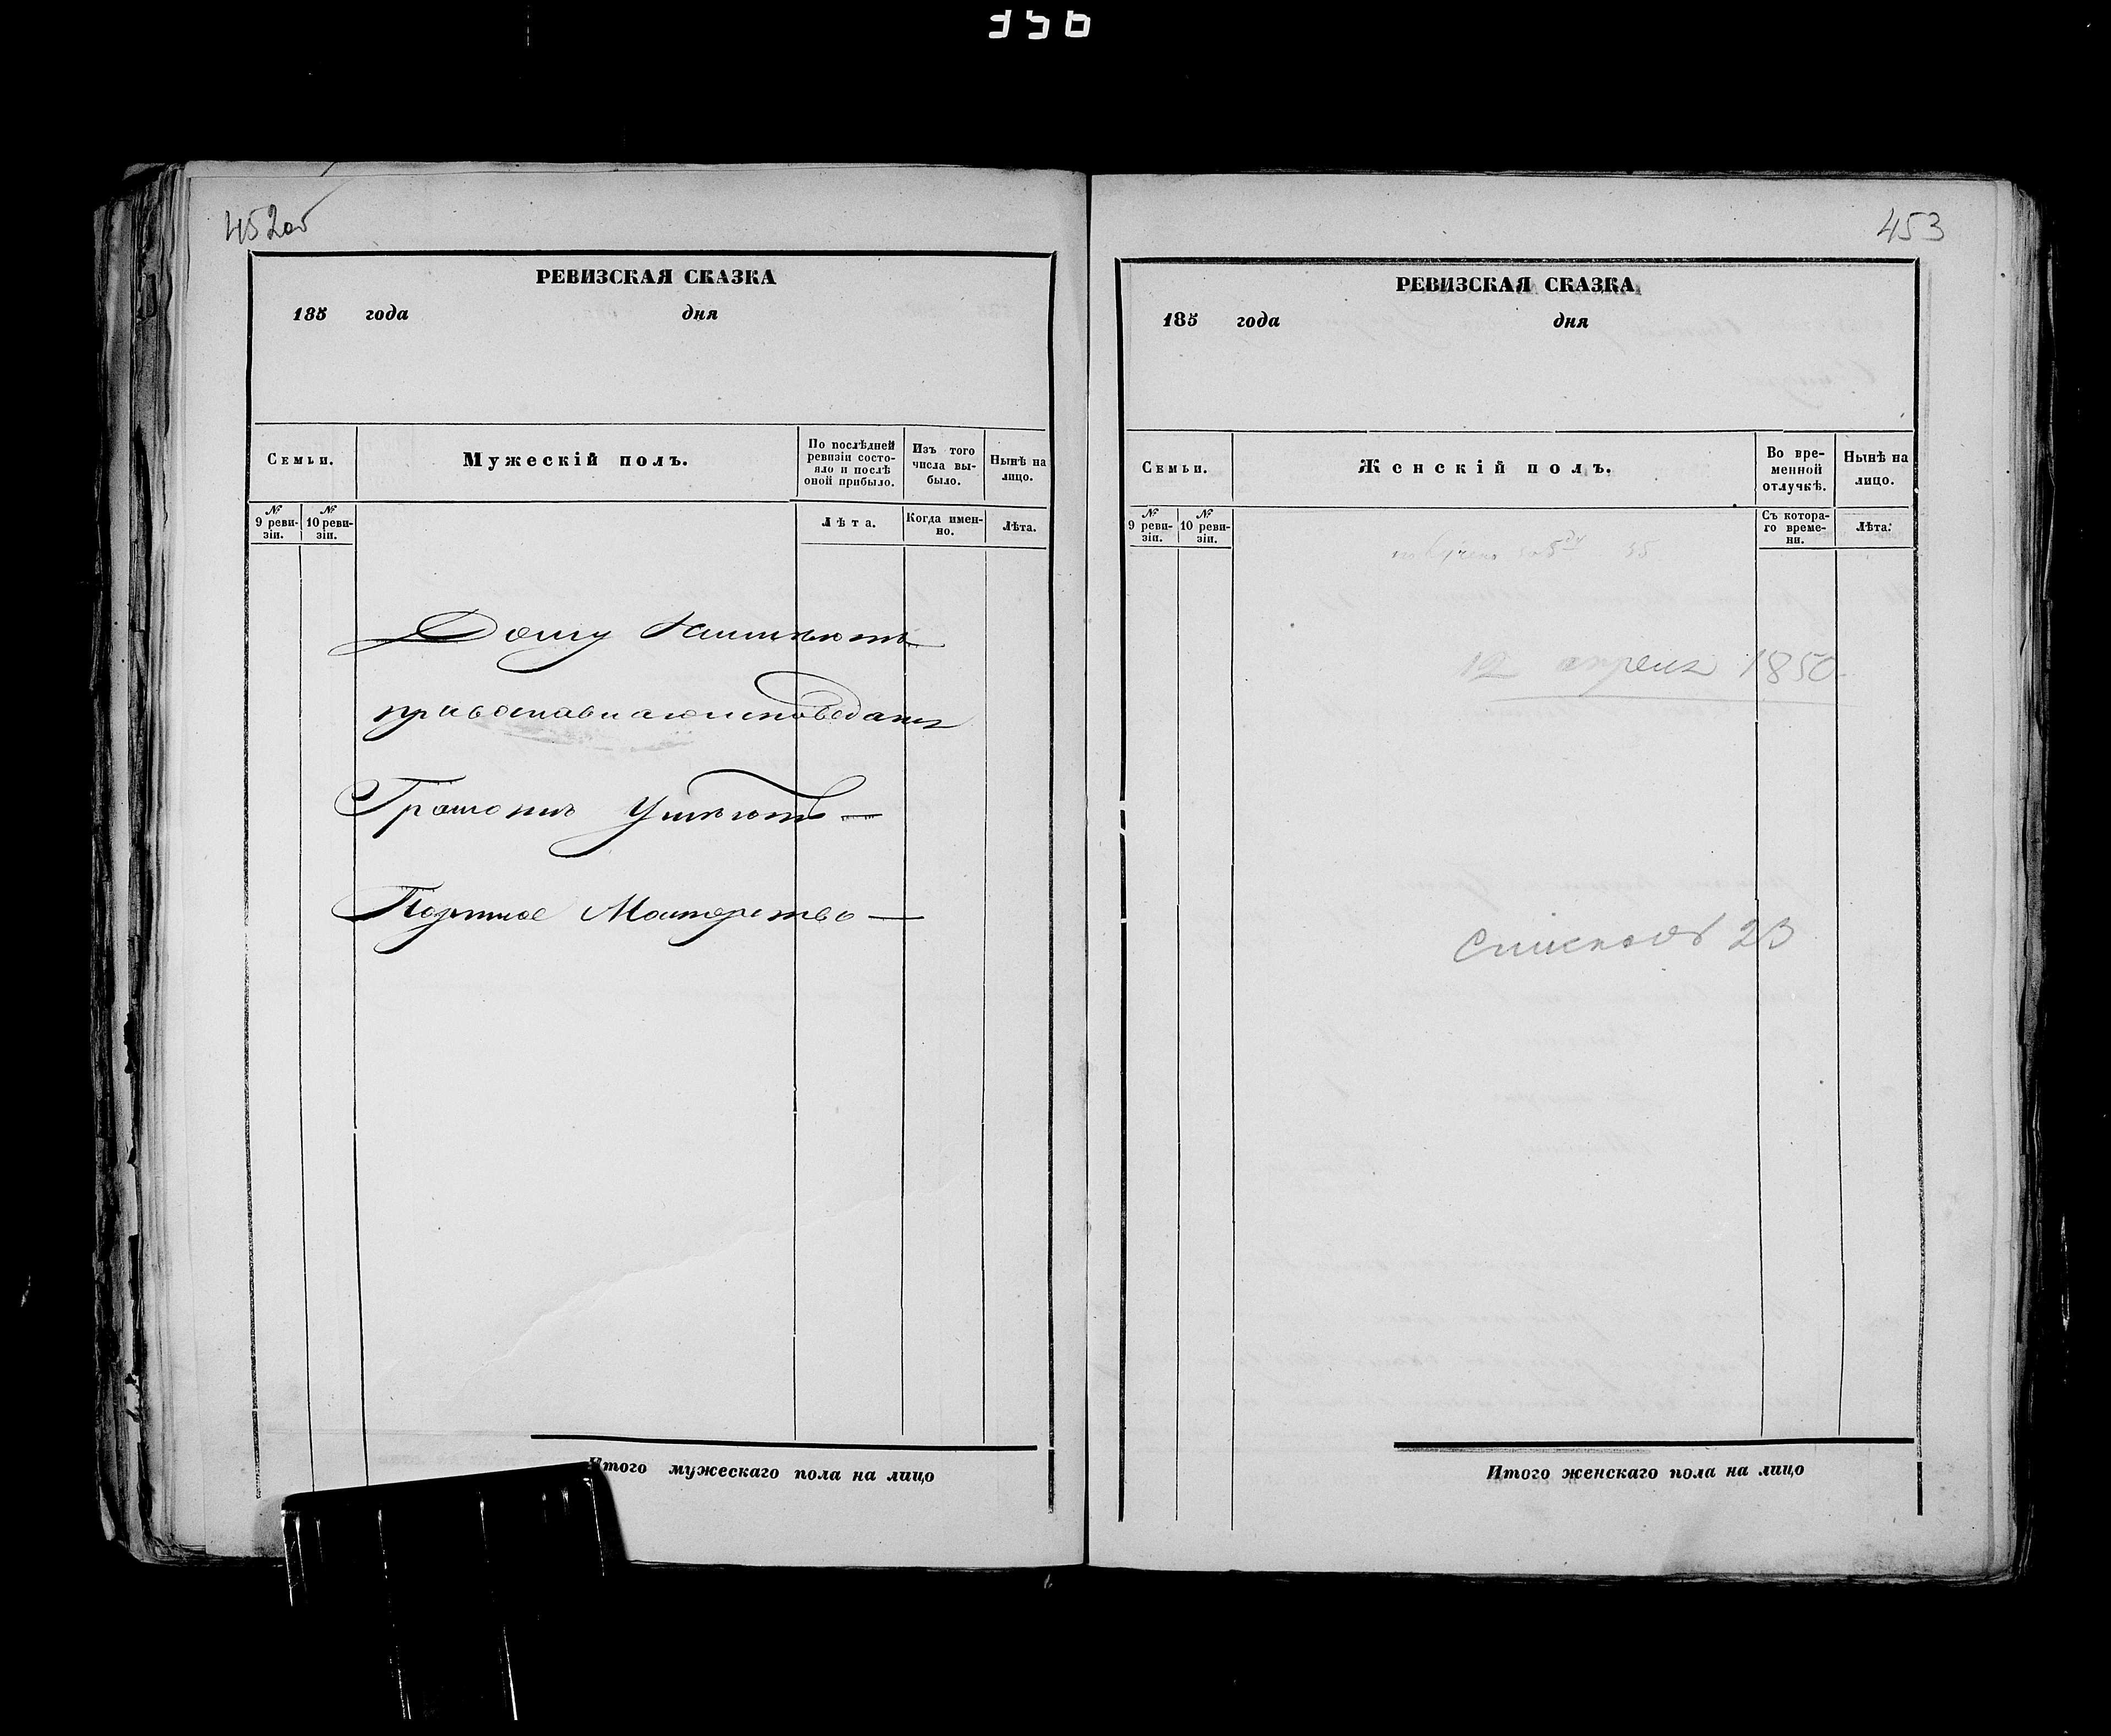 452об
РЕВИЗСКАЯ СКАЗКА
185 года дня
Семьи.
Мужескій полъ.
По послѣдней ревизіи состояло и послѣ оной прибыло.
Изъ того числа выбыло.
Нынѣ на лицо.
№ 9 ревизіи.
№ 10 ревизіи.
Лѣта.
Когда именно.
Лѣта.
Дому неимѣютъ
православнаго исповеданія
Грамотъ Умѣютъ —
Портное Мастерство —
Итого мужескаго пола на лицо
453
РЕВИЗСКАЯ СКАЗКА
185 года дня
Семьи.
Женскій полъ.
Во временной отлучкѣ.
Нынѣ на лицо.
№ 9 ревизіи.
№ 10 ревизіи.
Съ котораго времени.
Лѣта.
12 апреля 1850
Списковъ 23
Итого женскаго пола на лицо